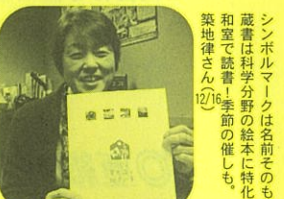 シンボルマークは名前そのも
蔵書は科学分野の絵本に特化
和室で読書！季節の催しも。
築地律さん(12/16)